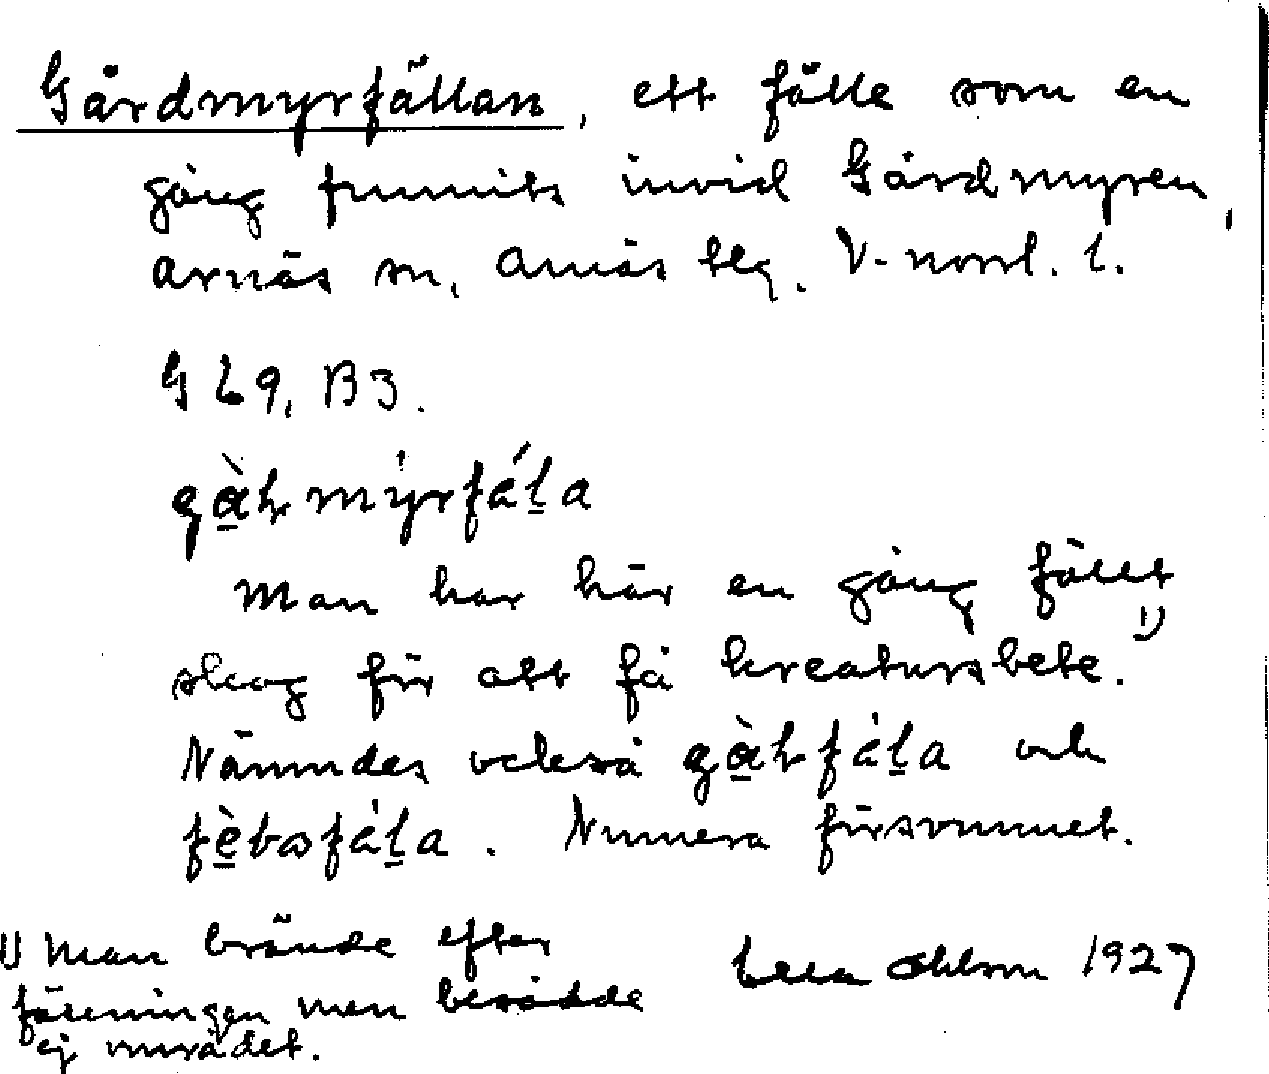 Gårdmyrfällan, ett fälle som en
gång funnits invid Gårdmyren,
Arnäs sn, Arnäs tlg. V-norrl. l.
G 69, B3.
Man har här en gång fällt
skog för att få kreatursbete. 1)
Nämndes också och
Numera försvunnet.
1) Man brände efter
fällningen men besådde
ej området.
Ohlson 1927